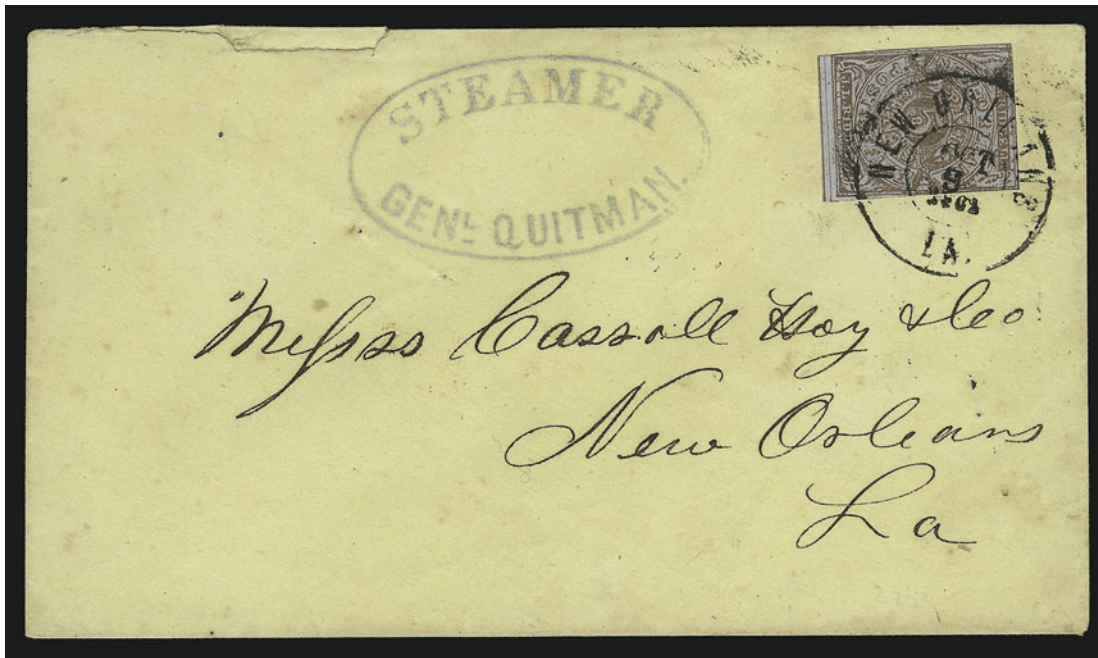 STEAMER
GENL QUITMAN.
NEW ORLEANS
OCT
9
1861
LA.
Messrs Carroll Hoy & Co
New Orleans
La